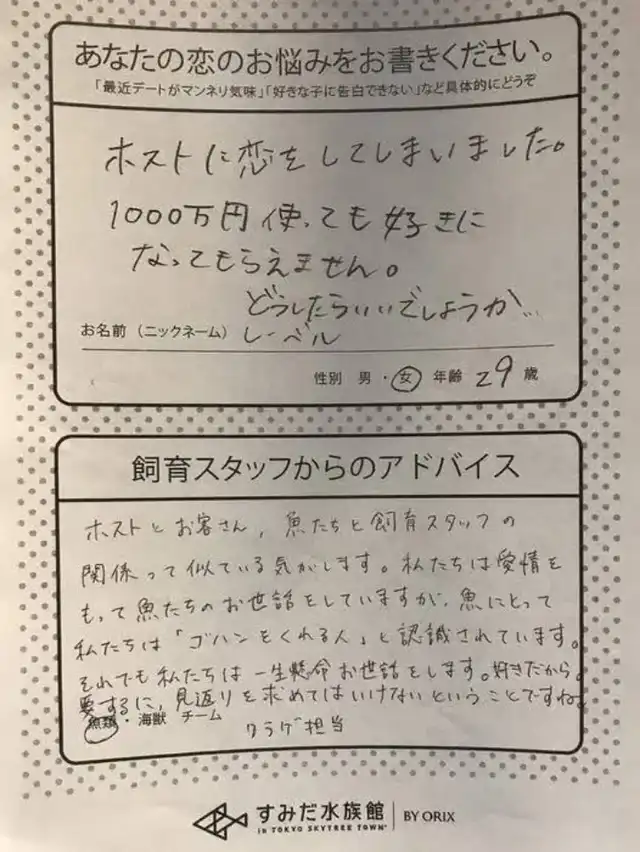 あなたの恋のお悩みをお書きください。
「最近デートがマンネリ気味」「好きな子に告白できない」など具体的にどうぞ
ホストに恋をしてしまいました。
1000万円使っても好きに
なってもらえません。
どうしたらいいでしょうか...
お名前（ニックネーム） レーベル
性別 男・女 年齢 29 歳
飼育スタッフからのアドバイス
ホストとお客さん、魚たちと飼育スタッフの
関係って似ている気がします。私たちは愛情を
もって魚たちのお世話をしていますが、魚にとって
私たちは「ゴハンをくれる人」と認識されています。
それでも私たちは一生懸命お世話をします。好きだから。
要するに、見返りを求めてはいけないということですね。
魚類・海獣 チーム クラゲ担当
すみだ水族館 BY ORIX
in TOKYO SKYTREE TOWN®